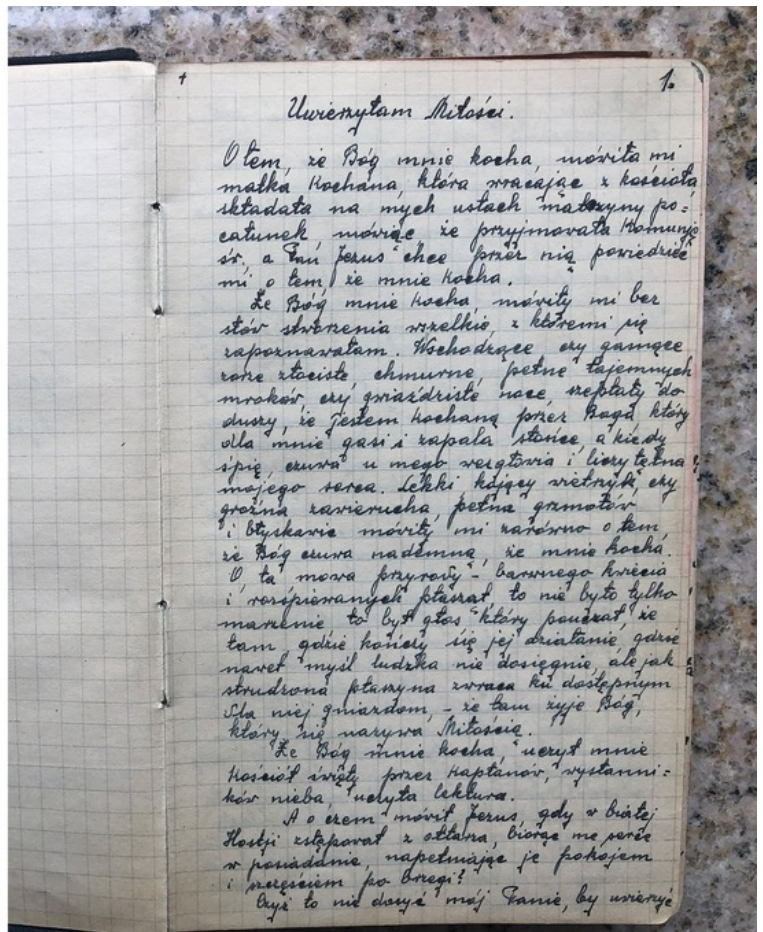 +
1.
Uwierzyłam Miłości.
O tem, że Bóg mnie kocha, mówiła mi
matka kochana, która wracając z kościoła
składała na mych ustach matczyny po=
całunek, mówiąc, że przyjmowała Komunję
św., a Pan Jezus chce przez nią powiedzieć
mi o tem, że mnie kocha.
Że Bóg mnie kocha, mówiły mi bez
słów stworzenia wszelkie, z któremi się
zapoznawałam. Wschodzące czy gasnące
zorze złociste, chmurne, pełne tajemnych
mroków, czy gwiaździste noce, szeptały do
duszy, że jestem kochaną przez Boga który
dla mnie gasi i zapala słońce, a kiedy
śpię, czuwa u mego wezgłowia i liczy tętna
mojego serca. Lekki kojący wietrzyk, czy
groźna zawierucha, pełna grzmotów
i błyskawic mówiły mi zarówno o tem,
że Bóg czuwa nademną, że mnie kocha.
O, ta mowa przyrody – barwnego kwiecia
i rozśpiewanych ptasząt to nie było tylko
marzenie to był głos który pouczał, że
tam, gdzie kończy się jej działanie, gdzie
nawet myśl ludzka nie dosięgnie, ale jak
strudzona ptaszyna zwraca ku dostępnym
dla niej gniazdom, – że tam żyje Bóg,
który się nazywa Miłością.
Że Bóg mnie kocha, uczył mnie
Kościół święty przez kapłanów, wysłanni=
ków nieba, uczyła lektura.
A o czem mówił Jezus, gdy w białej
Hostji zstępował z ołtarza, biorąc me serce
w posiadanie, napełniając je pokojem
i szczęściem po brzegi?
Czyż to nie dosyć mój Panie, by uwierzyć